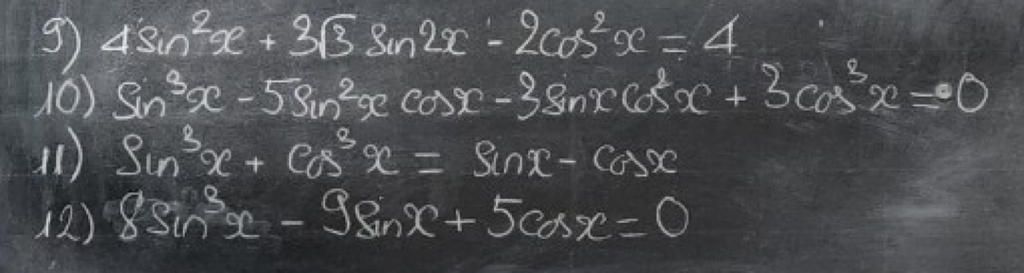 9) 4sin²x + 3√3 sin2x - 2cos²x = 4
10) sin³x - 5sin²x cosx - 3sinx cos²x + 3cos³x = 0
11) sin³x + cos³x = sinx - cosx
12) 8sin³x - 9sinx + 5cosx = 0